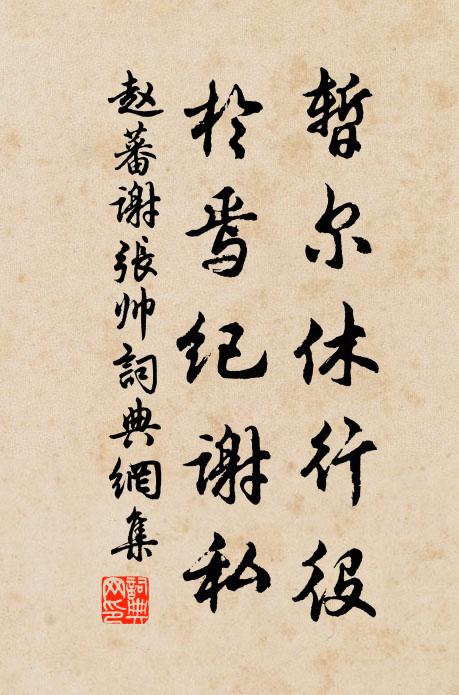 暂尔休行役
於焉纪谢私
赵蕃谢張帅詞典網集
詞典网印